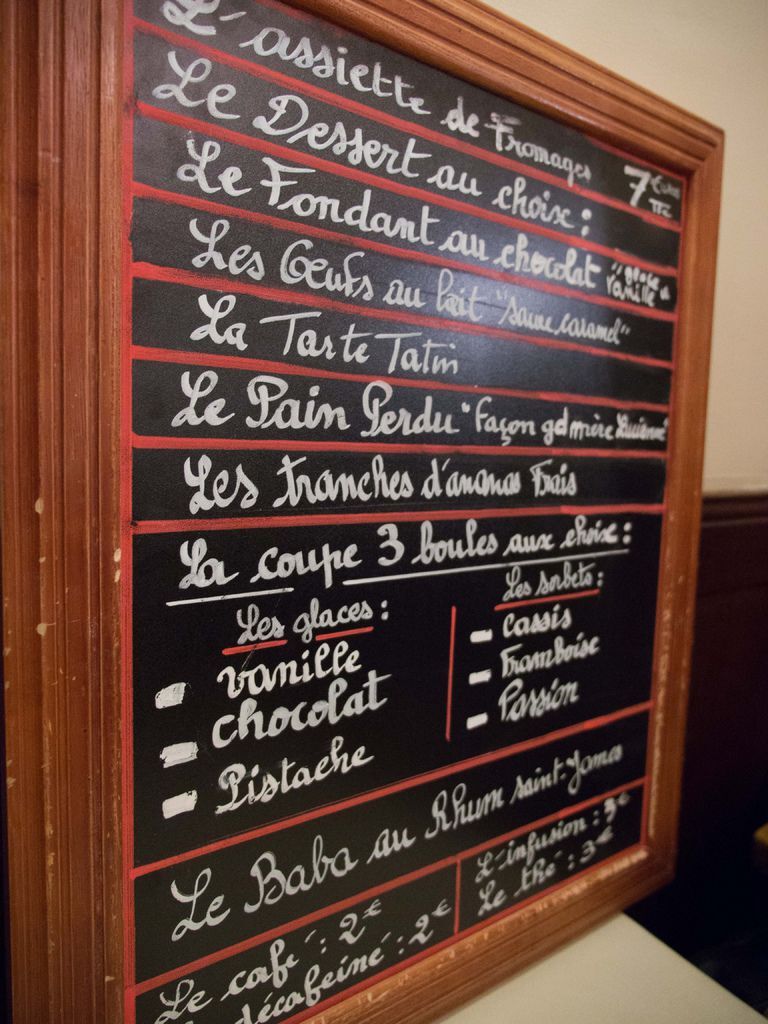 L'assiette de Fromages
Le Dessert au choix : 7 Euros TTC
Le Fondant au chocolat "glace vanille"
Les Œufs au lait "sauce caramel"
La Tarte Tatin
Le Pain Perdu "Façon gd mère Lucienne"
Les tranches d'ananas Frais
La coupe 3 boules aux choix :
Les glaces :
- vanille
- chocolat
- Pistache
Les sorbets :
- cassis
- Framboise
- Passion
Le Baba au Rhum saint-James
Le café : 2€
décaféiné : 2€
L'infusion : 3€
Le thé : 3€